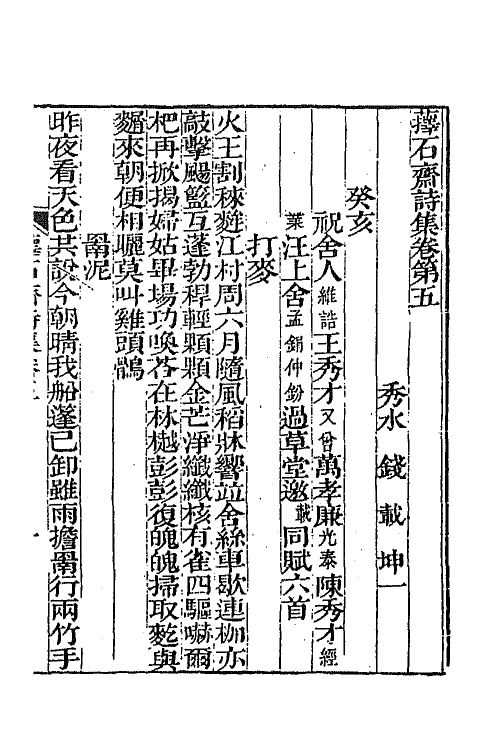 蘀石齋詩集卷第五
秀水 錢載 坤一
癸亥
祝舍人維誥王秀才又曾萬孝廉光泰陳秀才經
葉汪上舍孟鋗仲鈖過草堂邀載同賦六首
打麥
火王割稑麰江村周六月隨風稻牀響竝舍絲車歇連枷亦
敲擊颺籃互蓬勃稈輕顆顆金芒凈纖纖核有雀四驅嚇爾
杷再掀揭婦姑畢場功喚答在林樾彭彭復魄魄掃取麧與
麵來朝便相曬莫叫雞頭鶻
罱泥
昨夜看天色共說今朝晴我船蓬已卸雖雨擔罱行兩竹手